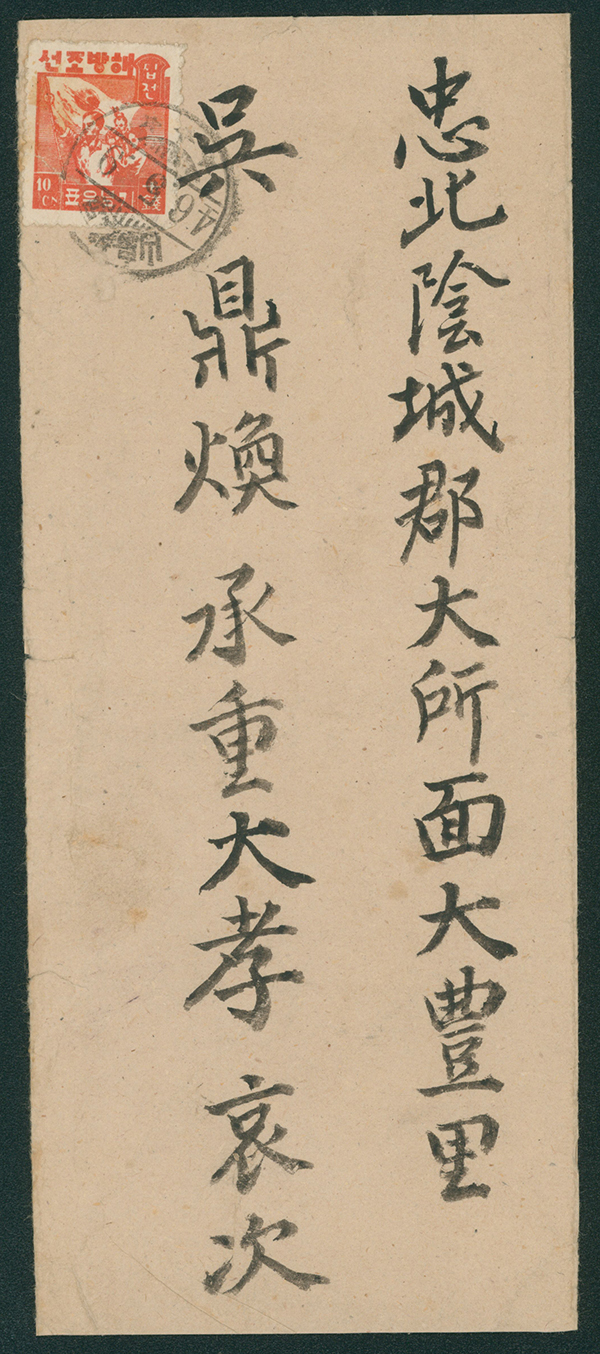 忠北陰城郡大所面大豊里
吳鼎煥承重大孝 哀次
선조방해
십전
10
CN
錢